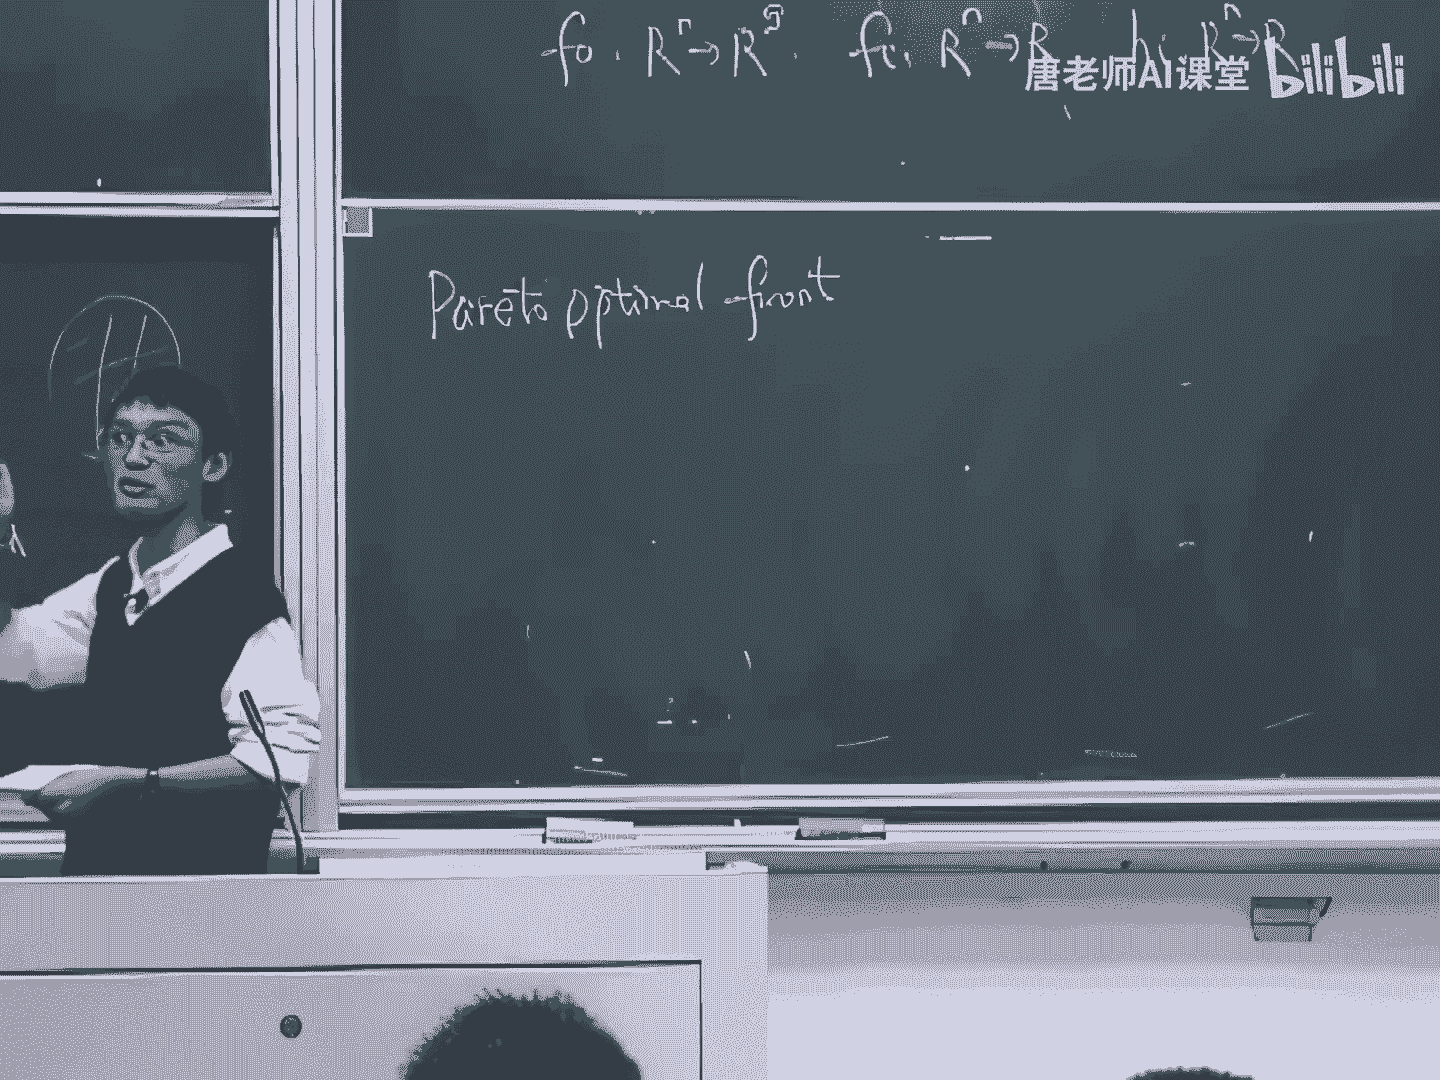 f₀: Rⁿ→R^q. fᵢ: Rⁿ→R hᵢ: Rⁿ→R
唐老师AI课堂 bilibili
Pareto optimal front